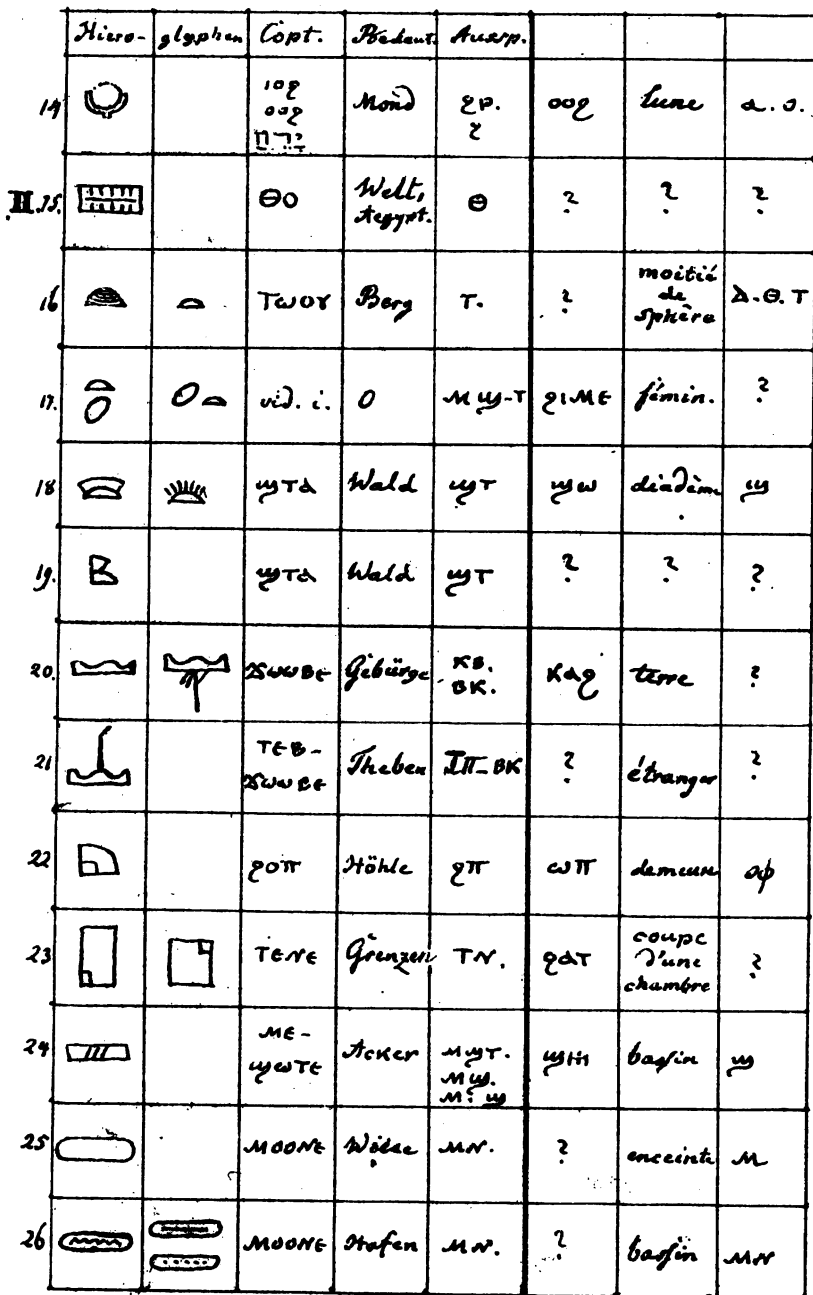 Hiero- glyphen Copt. Bedeut. Aussp.
14 ⲓⲟϩ ⲟⲟϩ ירח Mond ϩⲣ. ϩ ⲟⲟϩ lune a. o.
II. 15. ⲑⲟ Welt, Aegypt. ⲑ ? ? ?
16 ⲧⲱⲟⲩ Berg ⲧ. ? moitié de sphère ⲁ.ⲑ.ⲧ
17. vid. i. O ⲙϣ-ⲧ ϩⲓⲙⲉ fémin. ?
18 ϣⲧⲁ Wald ϣⲧ ϣⲱ diadèm ϣ
19. ϣⲧⲁ Wald ϣⲧ ? ? ?
20. ϫⲱⲱⲃⲉ Gebürge ⲕⲃ. ⲃⲕ. ⲕⲁϩ terre ?
21 ⲧⲉⲃ- ϫⲱⲱⲃⲉ Theben ⲡ-ⲃⲕ ? étranger ?
22 ϩⲟⲡ Höhle ϩⲡ ⲱⲡ demeure ⲟⲫ
23 ⲧⲉⲛⲉ Grenzen ⲧⲛ. ϩⲁⲧ coupe d'une chambre ?
24 ⲙⲉ- ϣⲱⲧⲉ Acker ⲙϣⲧ. ⲙϣ. ⲙ: ϣ ϣⲏⲓ bassin ϣ
25 ⲙⲟⲟⲛⲉ ⲙⲛ. ? enceinte ⲙ
26 ⲙⲟⲟⲛⲉ Hafen ⲙⲛ. ? bassin ⲙⲛ